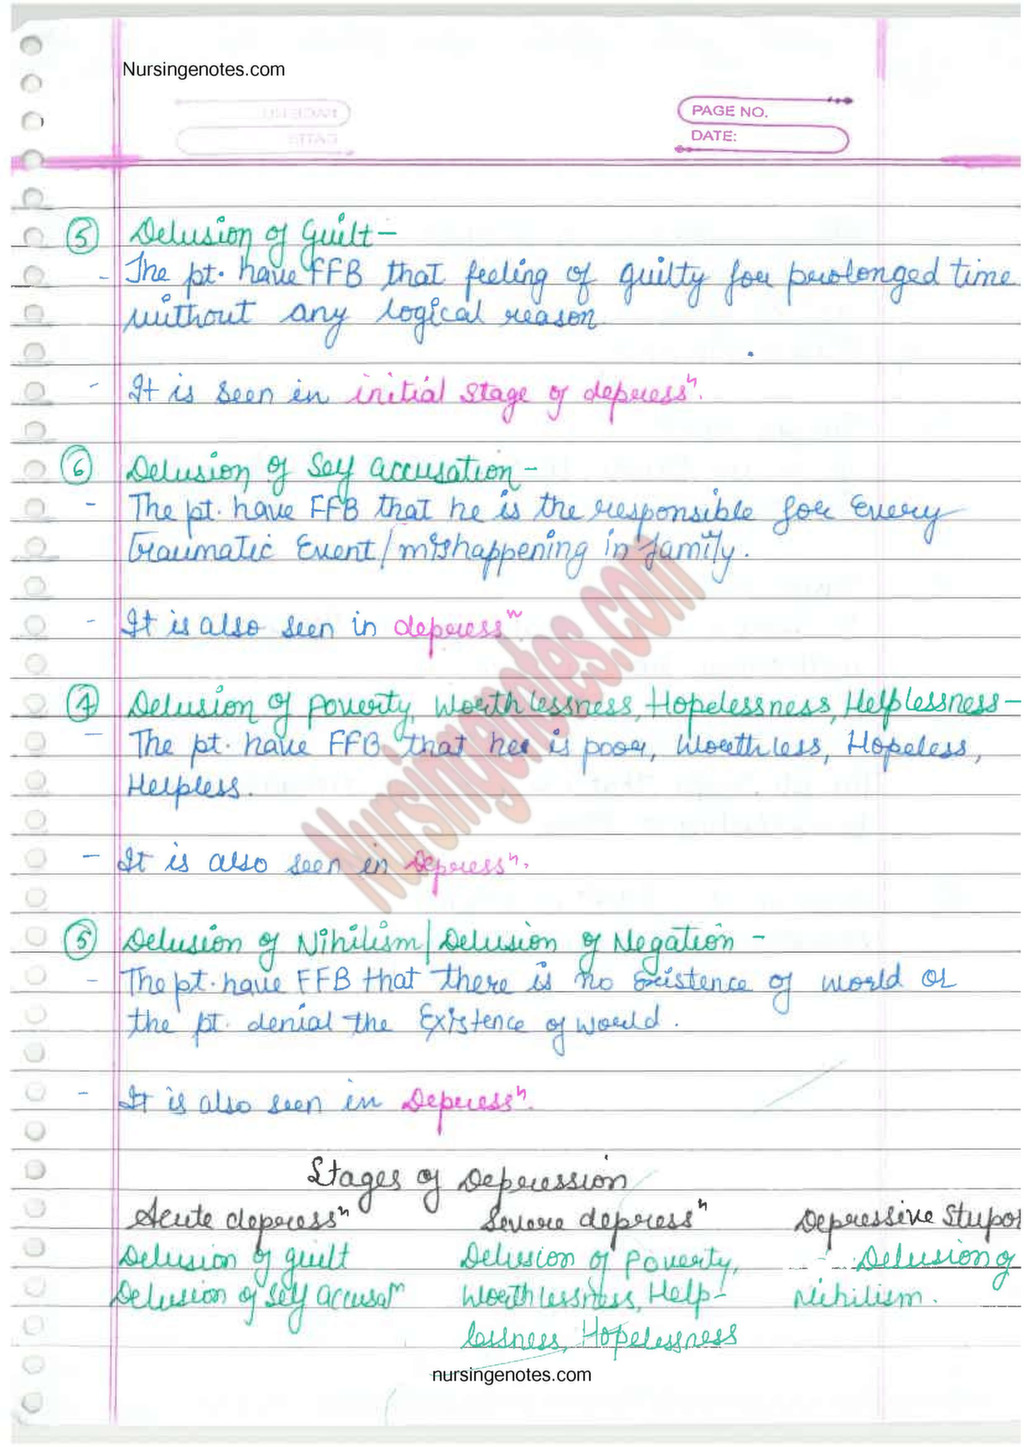 Nursingenotes.com
PAGE NO.
DATE:
⑤ Delusion of Guilt -
- The pt. have FFB that feeling of guilty for prolonged time
without any logical reason
- It is seen in initial stage of depressⁿ.
⑥ Delusion of Self accusation -
- The pt. have FFB that he is the responsible for Every
Traumatic Event/mishappening in family.
- It is also seen in depressⁿ
⑦ Delusion of Poverty, Worthlessness, Hopelessness, Helplessness -
- The pt. have FFB that he is poor, Worthless, Hopeless,
Helpless.
- It is also seen in Depressⁿ.
⑤ Delusion of Nihilism/Delusion of Negation -
- The pt. have FFB that there is no existence of world or
the pt. denial the Existence of world.
- It is also seen in Depressⁿ.
Stages of Depression
Acute depressⁿ Severe depressⁿ Depressive Stupor
Delusion of guilt Delusion of Poverty, - Delusion of
Delusion of self accusatⁿ Worthlessness, Help- Nihilism.
lessness, Hopelessness
Nursingenotes.com
nursingenotes.com